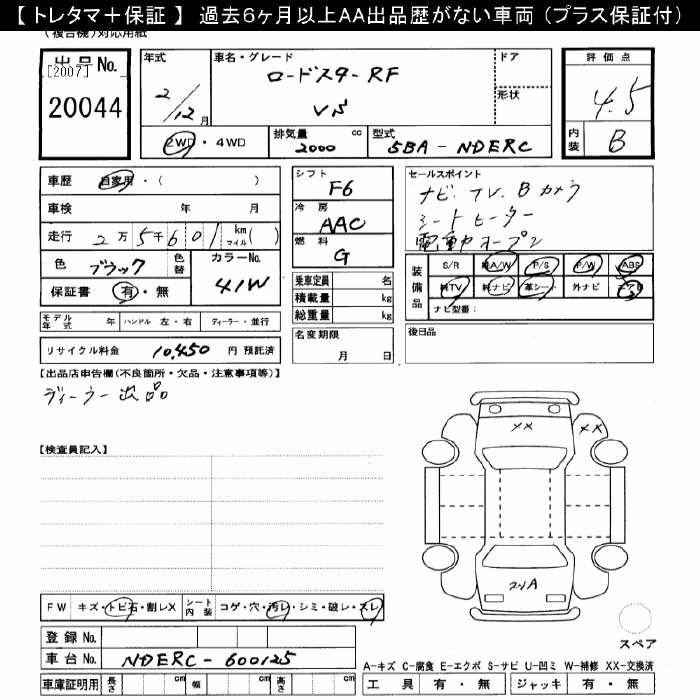 【 トレタマ＋保証 】 過去6ヶ月以上AA出品歴がない車両（プラス保証付）
（複合機）対応用紙
出品No.
[2007]
20044
年式
2/12月
車名・グレード
ロードスターRF
VS
ドア
形状
評価点
4.5
内装 B
2WD・4WD
排気量 2000 cc
型式 5BA-NDERC
車歴 自家用・( )
車検 年 月
走行 2万5千601 km マイル( )
色 ブラック 色替
カラーNo. 41W
保証書 有・無
シフト F6
冷房 AAC
燃料 G
乗車定員 名
積載量 kg
総重量 kg
セールスポイント
ナビ.TV.Bカメラ
シートヒーター
電動オープン
装備品 S/R 純A/W P/S P/W ABS
純TV 純ナビ 革シート 外ナビ エアB
ナビ型番：
モデル年式 年 ハンドル 左・右 ディーラー・並行
名変期限 月 日
後日品
リサイクル料金 10,450 円 預託済
【出品店申告欄(不良箇所・欠品・注意事項等)】
ディーラー出品
【検査員記入】
XX
XX
2-1A
FW キズ・トビ石・割レX シート内装 コゲ・穴・汚レ・シミ・破レ・スレ
登録No.
車台No. NDERC-600125
スペア
A-キズ C-腐食 E-エクボ S-サビ U-凹ミ W-補修 XX-交換済
車庫証明用 長さ cm 幅 cm 高さ cm
工具 有・無 ジャッキ 有・無